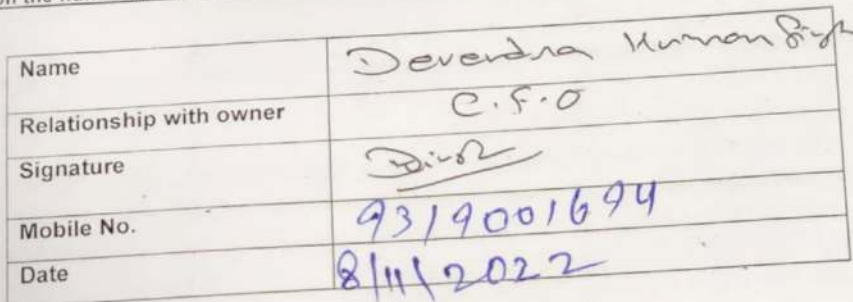 on the
Name Devendra Kumar Singh
Relationship with owner C.F.O
Signature
Mobile No. 9319001694
Date 8/11/2022